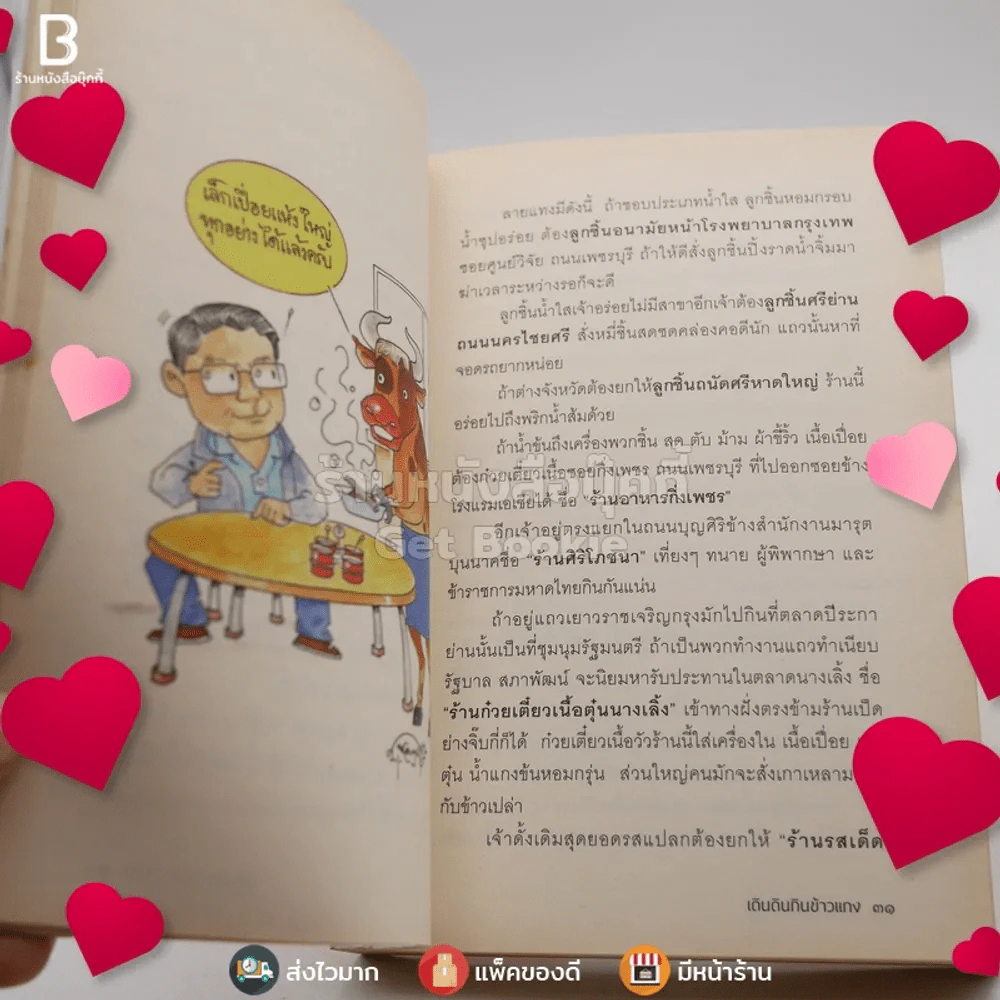 B
ร้านหนังสือบุ๊กกี้
เล็กเปื่อยแห้งใหญ่
ทุกอย่างได้แล้วครับ
ลายแทงมีดังนี้ ถ้าชอบประเภทน้ำใส ลูกชิ้นหอมกรอบ
น้ำซุปอร่อย ต้องลูกชิ้นอนามัยหน้าโรงพยาบาลกรุงเทพ
ซอยศูนย์วิจัย ถนนเพชรบุรี ถ้าให้ดีสั่งลูกชิ้นปิ้งราดน้ำจิ้มมา
ฆ่าเวลาระหว่างรอก็จะดี
ลูกชิ้นน้ำใสเจ้าอร่อยไม่มีสาขาอีกเจ้าต้องลูกชิ้นศรีย่าน
ถนนนครไชยศรี สั่งหมี่ชิ้นสดซดคล่องคอดีนัก แถวนั้นหาที่
จอดรถยากหน่อย
ถ้าต่างจังหวัดต้องยกให้ลูกชิ้นถนัดศรีหาดใหญ่ ร้านนี้
อร่อยไปถึงพริกน้ำส้มด้วย
ถ้าน้ำข้นถึงเครื่องพวกชิ้น สด ตับ ม้าม ผ้าขี้ริ้ว เนื้อเปื่อย
ต้องก๋วยเตี๋ยวเนื้อซอยกิ่งเพชร ถนนเพชรบุรี ที่ไปออกซอยข้าง
โรงแรมเอเชียได้ ชื่อ “ร้านอาหารกิ่งเพชร”
อีกเจ้าอยู่ตรงแยกในถนนบุญศิริข้างสำนักงานมารุต
บุนนาคชื่อ “ร้านศิริโภชนา” เที่ยงๆ ทนาย ผู้พิพากษา และ
ข้าราชการมหาดไทยกินกันแน่น
ถ้าอยู่แถวเยาวราชเจริญกรุงมักไปกินที่ตลาดปีระกา
ย่านนั้นเป็นที่ชุมนุมรัฐมนตรี ถ้าเป็นพวกทำงานแถวทำเนียบ
รัฐบาล สภาพัฒน์ จะนิยมหารับประทานในตลาดนางเลิ้ง ชื่อ
“ร้านก๋วยเตี๋ยวเนื้อตุ๋นนางเลิ้ง” เข้าทางฝั่งตรงข้ามร้านเป็ด
ย่างจิ๊บกี่ก็ได้ ก๋วยเตี๋ยวเนื้อวัวร้านนี้ใส่เครื่องใน เนื้อเปื่อย
ตุ๋น น้ำแกงข้นหอมกรุ่น ส่วนใหญ่คนมักจะสั่งเกาเหลามา
กับข้าวเปล่า
เจ้าดั้งเดิมสุดยอดรสแปลกต้องยกให้ “ร้านรสเด็ด
เดินดินกินข้าวแกง ๓๑
ร้านหนังสือบุ๊กกี้
Get Bookie
ส่งไวมาก
แพ็คของดี
มีหน้าร้าน